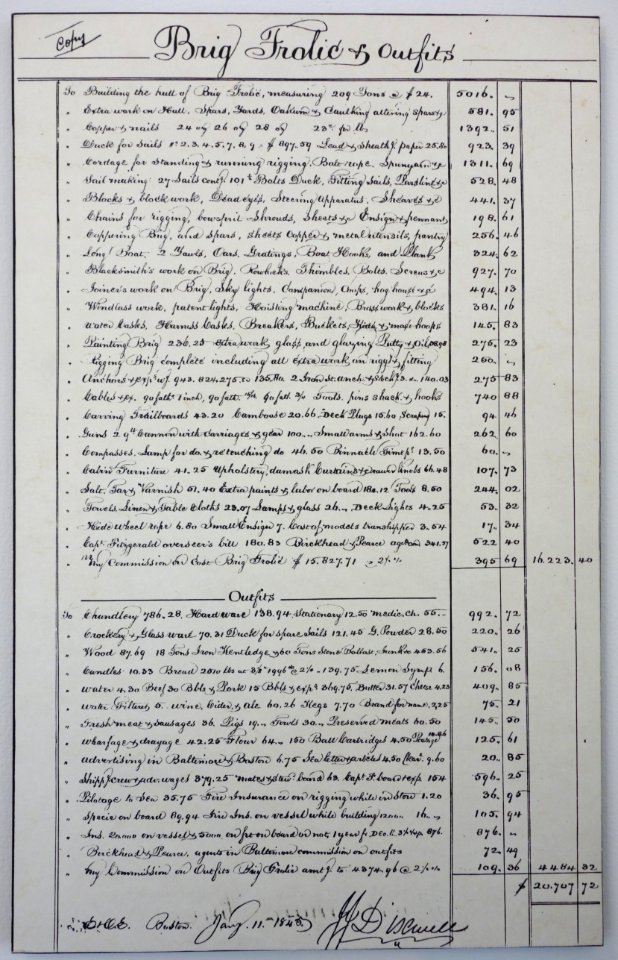 Copy
Brig Frolic & Outfits
To Building the hull of Brig Frolic, measuring 209 Tons @ $24. 5016. "
" Extra work on Hull, Spars, Yards, Oakum & Caulking altering spars & 581. 95
" Copper & nails 24 oz 26 oz 28 oz 23¢ pr lb 1392. 51
" Duck for Sails 1. 2. 3. 4. 5. 7. 8. 9 $897.59 Lead & sheathg paper 25.80 923. 39
" Cordage for standing & running rigging, Bolt rope, Spunyarn & 1311. 69
" Sail making 27 Sails 101 Bolts Duck, Fitting Sails, 528. 48
" Blocks & block work, Dead eyes, Steering Apparatus, Sheaves &c 441. 37
" Chains for rigging, bowsprit Shrouds, Sheets & Ensign & pennant 198. 61
" Coppering Brig, and spars, sheets Copper & metal utensils, pantry 256. 46
" Long Boat, 2 Yawls, Oars, Gratings, Boat Hooks, and Plank 324. 62
" Blacksmith's work on Brig, Thimbles, Bolts, Screws &c 927. 70
" Joiner's work on Brig, Sky lights, Companion, Coops, hog house &c 494. 13
" Windlass work, patent lights, Hoisting machine, Brass work & blocks 381. 16
" Water Casks, Harness Casks, Breakers, Buckets, Kids & mast hoops 145. 83
" Painting Brig 236.23 extra work, glass, and glazing Putty & 276. 23
" Rigging Brig complete including all extra work in rigg & fitting 260. "
" Anchors 943. 824. 275. 135. 2 Iron St. anch & 140.03 275 83
" Cables 90 fath 1 inch, 90 fath 90 fath pins shack & hooks 740 88
" Carving Trailboards 43.20 Cambouse 20.66 Deck Plugs 15.60 Scraping 15. 94 46
" Guns 2 Cannon with carriages & gear 100 Small arms & Shot 162.60 262 60
" Compasses, Lamp for do & retouching do 46.50 Binnacle Time ps 13.50 60. "
" Cabin Furniture 41.25 Upholstery, damask Curtains & drawer knobs 66.48 107. 73
" Salt, Tar & Varnish 51.40 Extra paints & labor on board 184.12 Tools 8.50 244. 02
" Towels, Linen & Table Cloths 23.07 Lamps & glass 26. Deck Lights 4.25 53. 32
" Hide Wheel rope 6.80 Small Ensign 7. Cost of models transhipped 3.54 17. 34
" Capt Fitzgerald overseer's bill 180.83 Birckhead & Pearce 341.57 522 40
" My Commission on Cost Brig Frolic $15,827.71 @ 2½% 395 69 16,223. 40
Outfits
To Chandlery 786.28, Hardware 138.94, Stationary 12.50 medic. ch. 55 992. 72
" Crockery & Glass ware 70.31 Duck for spare Sails 121.45 G. Powder 28.50 220. 26
" Wood 87.69 18 Tons Iron Kentledge & 60 Tons Stone Ballast, Junk &c 453.56 541. 25
" Candles 10.33 Bread 139.75 Lemon Syrup 6. 156. 08
" Water 4.30 Beef 30 Bbls & Pork 15 Bbls 369.75, Butter 31.57 Cheese 4.23 409. 85
" Water Filters 5. wine, Cider & ale 60.26 Kegs 7.70 Brand for name 2.25 75. 21
" Fresh meat & sausages 36. Pigs 19. Fowls 30. Preserved meats 60.50 145. 50
" Wharfage & drayage 42.25 Flour 64. 150 Ball Cartridges 4.50 125. 61
" Advertising in Baltimore & Boston 6.75 Sea letter & articles 4.50 Clear. 9.60 20. 85
" Shippg crew & adv. wages 379.25 mates & stew board 63. Capt F. board & exp. 154 596. 25
" Pilotage to Sea 35.75 Fire Insurance on rigging while in store 1.20 36. 95
" Specie on board 89.94 Fire Ins. on vessel while building 16. 105. 94
" Ins. on vessel & on frt on board or not, 1 year f. Dec. 876. 876. "
" Birckhead & Pearce, agents in Baltimore commission on outfits 72. 49
" My Commission on Outfits Brig Frolic amtg to 4374.96 @ 2½% 109. 36 4484 32
$ 20,707 72
E & O E. Boston Jany. 11. 1845